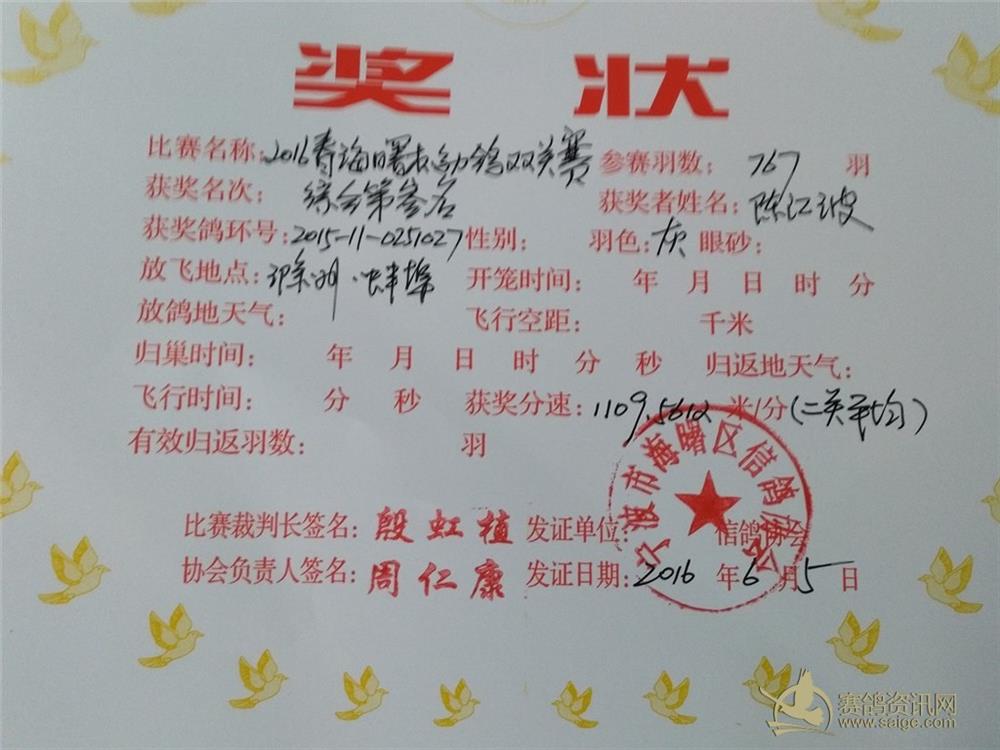 奖状
比赛名称:2016春海曙长幼鸽双关赛 参赛羽数: 767 羽
获奖名次: 综合第叁名 获奖者姓名: 陈江波
获奖鸽环号:2015-11-0251027 性别: 羽色:灰 眼砂:
放飞地点:滁州·蚌埠 开笼时间: 年 月 日 时 分
放鸽地天气: 飞行空距: 千米
归巢时间: 年 月 日 时 分 秒 归返地天气:
飞行时间: 分 秒 获奖分速:1109.5612 米/分(二关平均)
有效归返羽数: 羽
宁波市海曙区信鸽协会
比赛裁判长签名:殷虹植 发证单位: 信鸽协会
协会负责人签名:周仁康 发证日期:2016年6月5日
赛鸽资讯网
www.saige.com